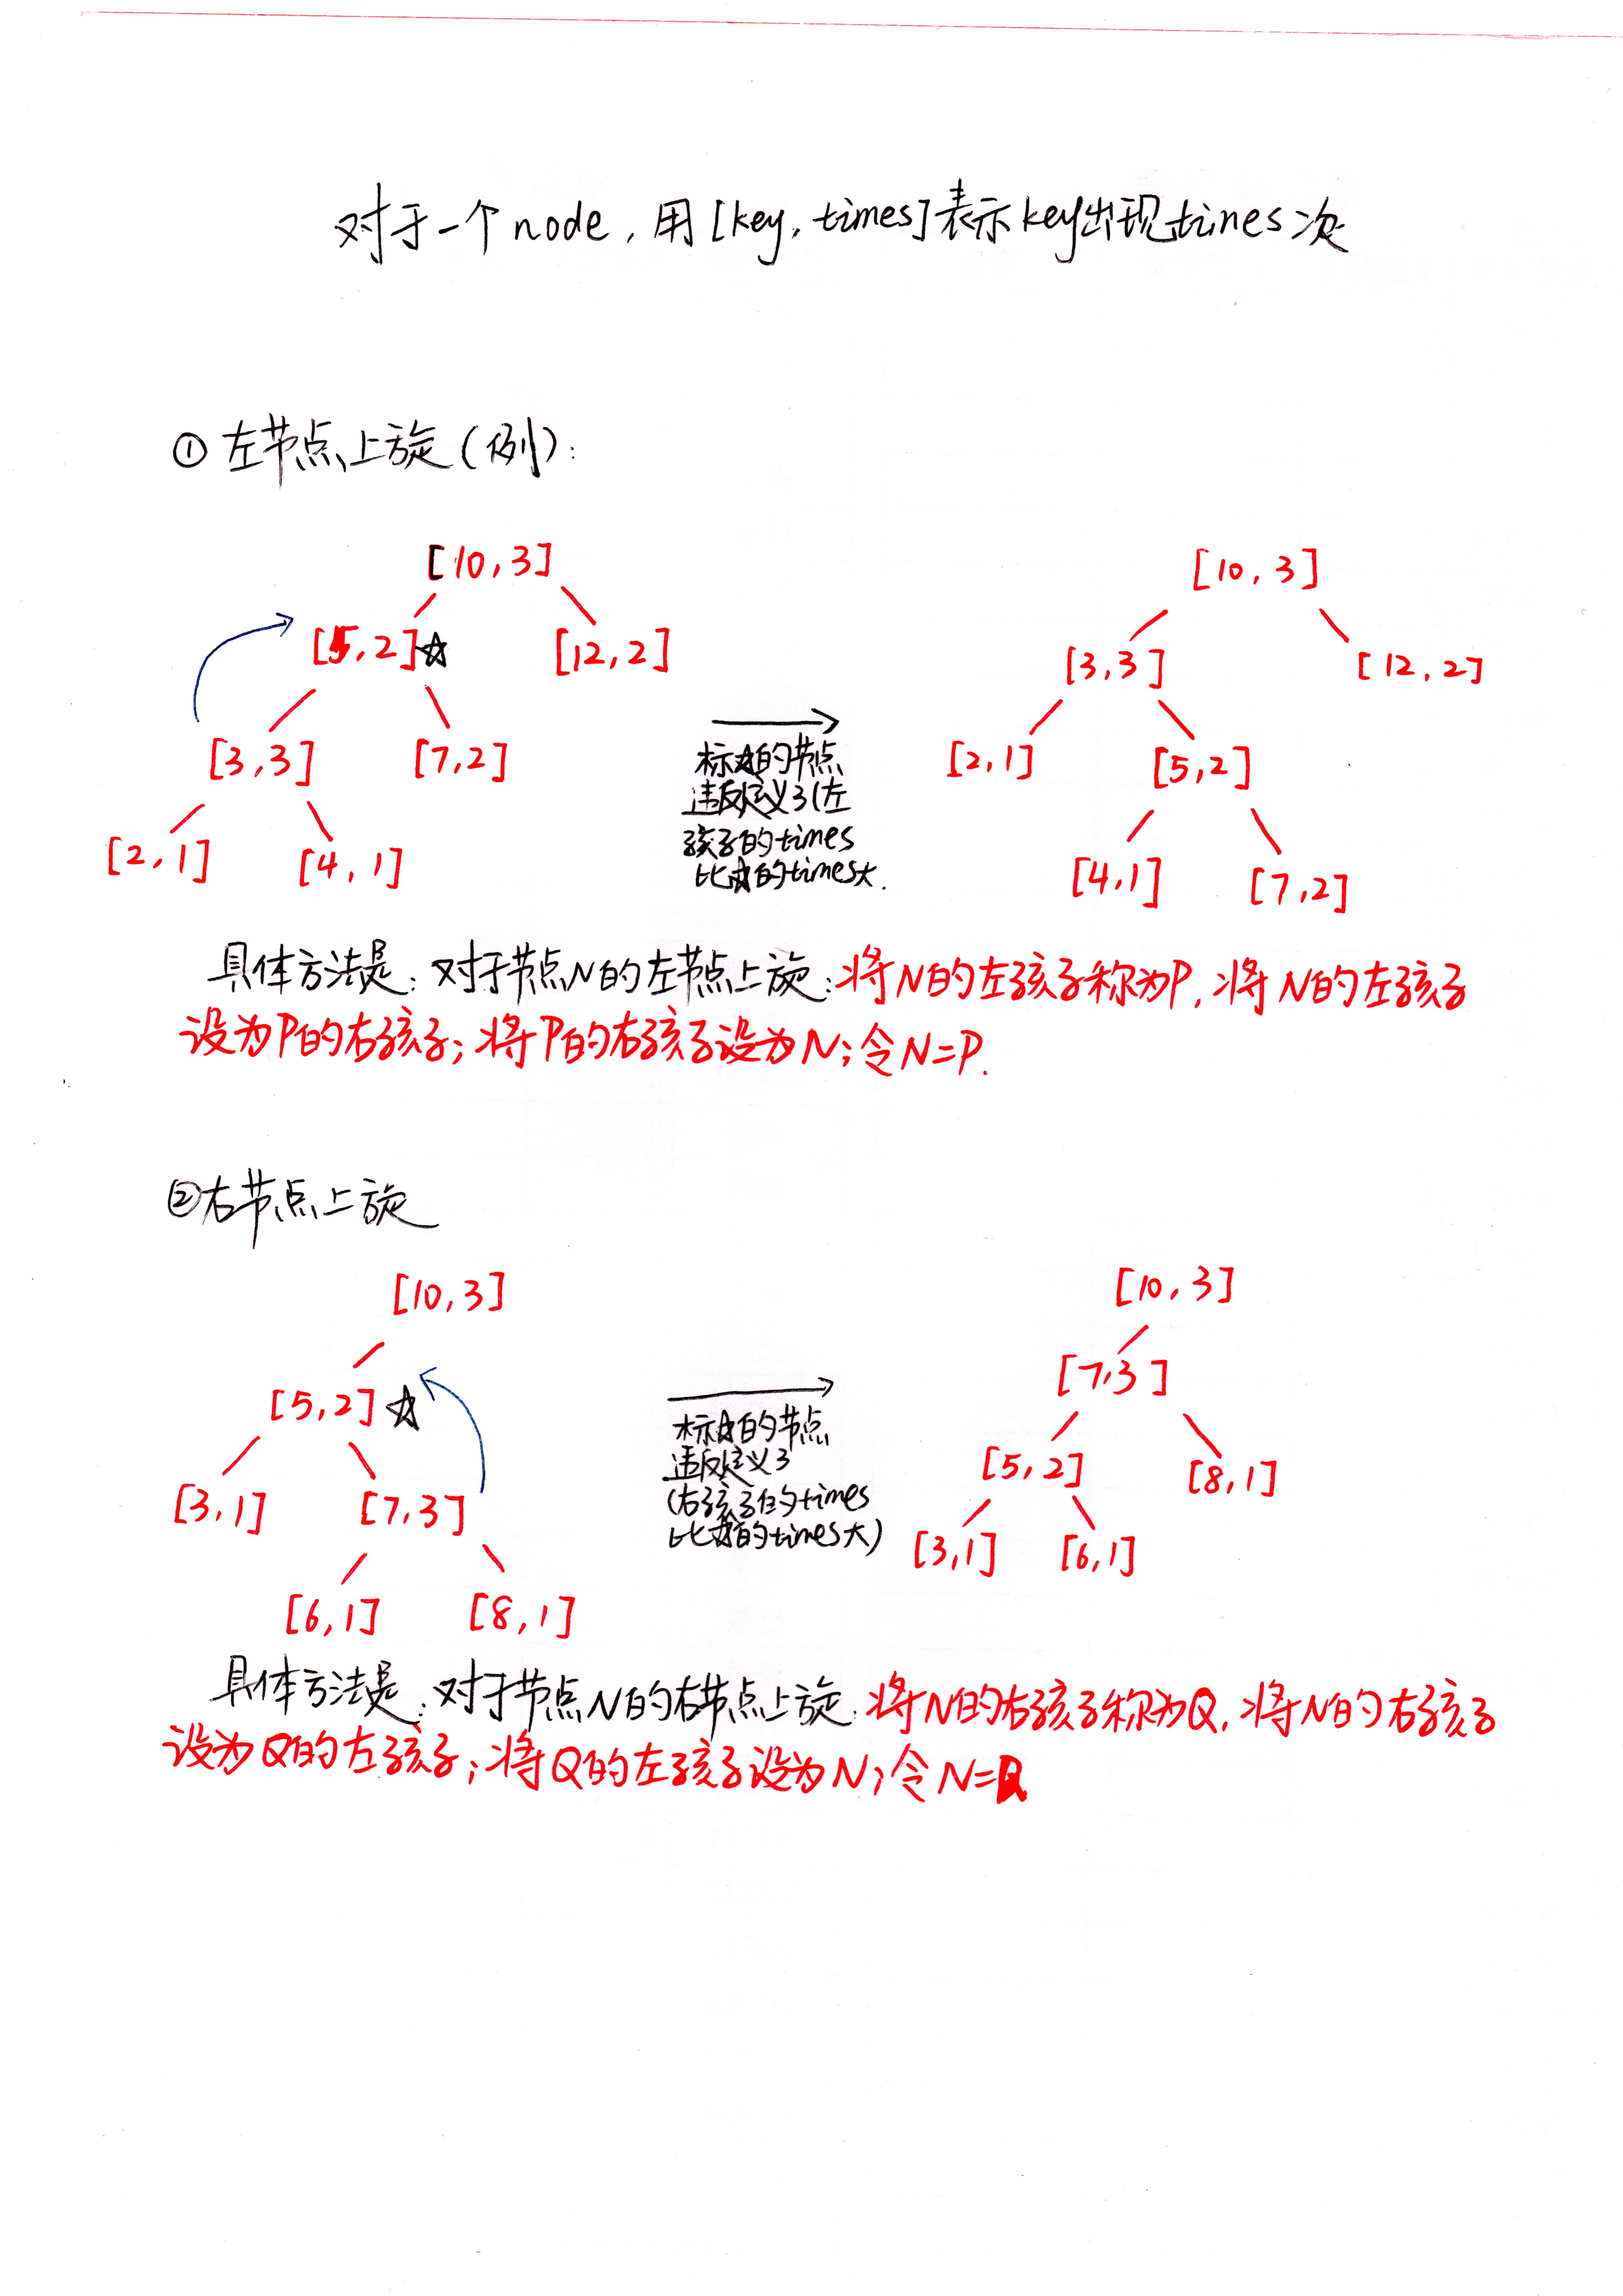 对于一个node,用[key,times]表示key出现times次
①左节点上旋(例):
[10,3]
[5,2]☆
[12,2]
[3,3]
[7,2]
[2,1]
[4,1]
标☆的节点
违反定义3(左
孩子的times
比☆的times大.
[10,3]
[3,3]
[12,2]
[2,1]
[5,2]
[4,1]
[7,2]
具体方法是:对于节点N的左节点上旋:将N的左孩子称为P,将N的左孩子
设为P的右孩子;将P的右孩子设为N;令N=P.
②右节点上旋
[10,3]
[5,2]☆
[3,1]
[7,3]
[6,1]
[8,1]
标☆的节点
违反定义3
(右孩子的times
比☆的times大)
[10,3]
[7,3]
[5,2]
[8,1]
[3,1]
[6,1]
具体方法是:对于节点N的右节点上旋:将N的右孩子称为Q,将N的右孩子
设为Q的左孩子;将Q的左孩子设为N;令N=Q